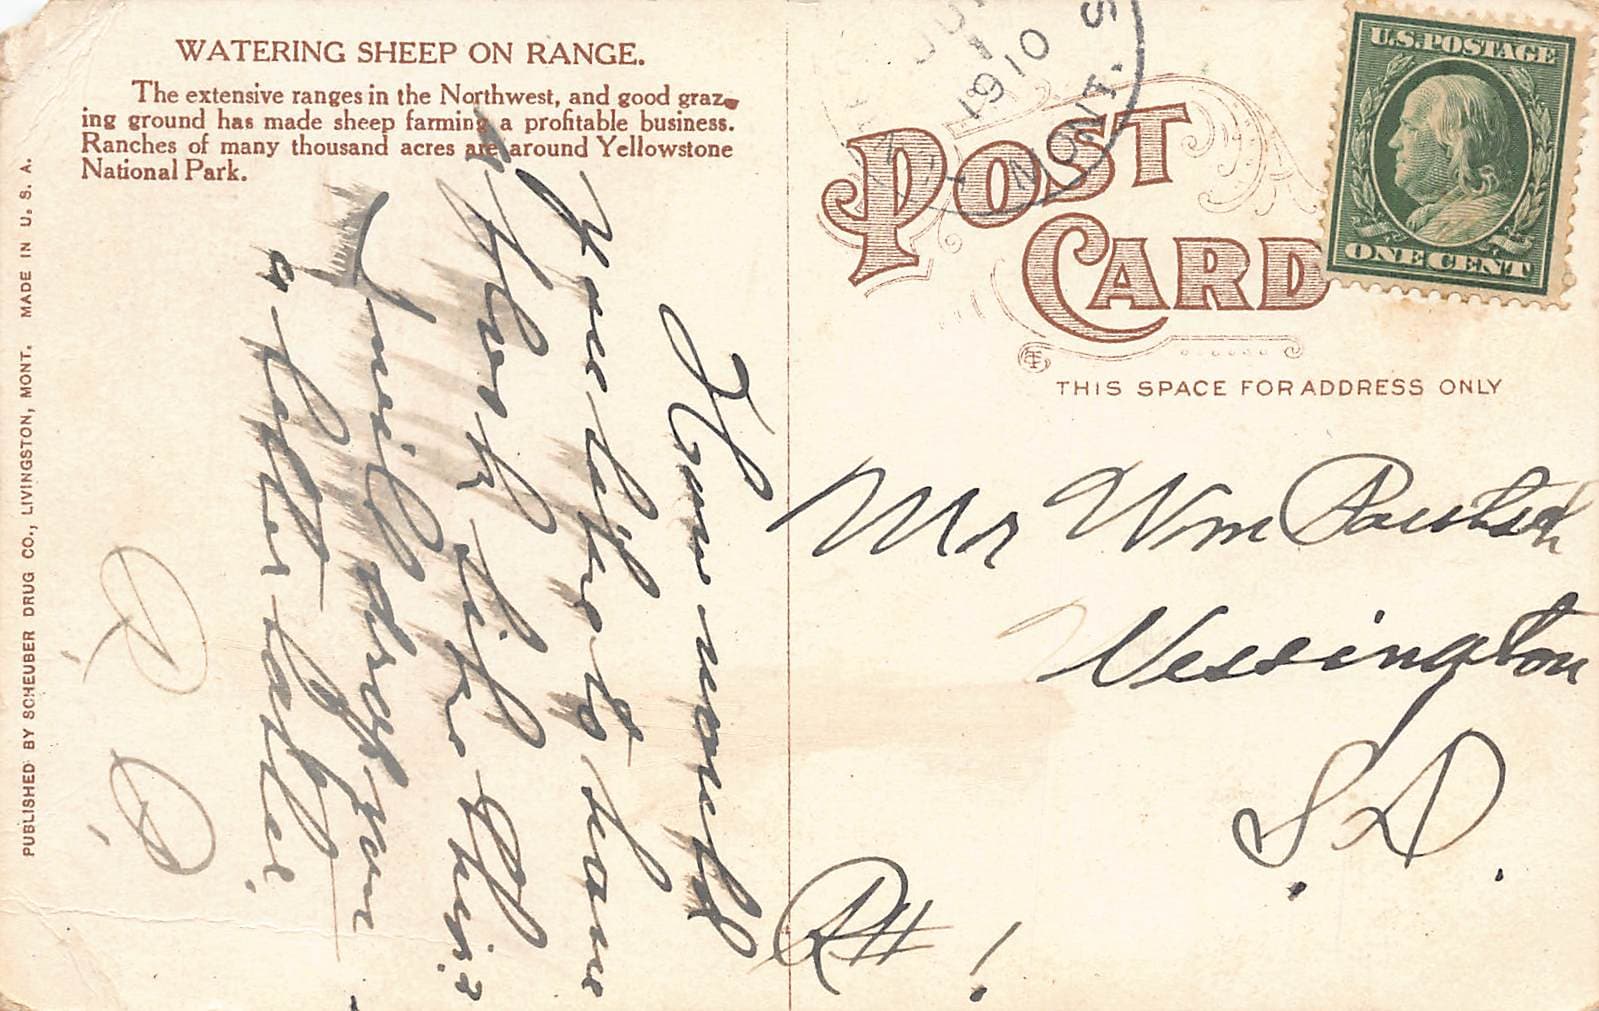 WATERING SHEEP ON RANGE.
The extensive ranges in the Northwest, and good graz-
ing ground has made sheep farming a profitable business.
Ranches of many thousand acres are around Yellowstone
National Park.
PUBLISHED BY SCHEUBER DRUG CO., LIVINGSTON, MONT. MADE IN U. S. A.
How would
you like to have
a flock like this?
I will drop you
a letter later.
R. R.
1
1910
MONT.
POST
CARD
U.S. POSTAGE
ONE CENT
THIS SPACE FOR ADDRESS ONLY
Mr Wm
Wessington
S.D.
R# 1